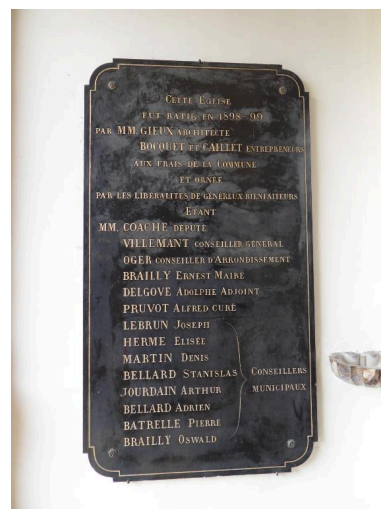 CETTE EGLISE
FUT BATIE EN 1898-99
PAR MM. GIEUX ARCHITECTE
BOCQUET ET CAILLET ENTREPRENEURS
AUX FRAIS DE LA COMMUNE
ET ORNÉE
PAR LES LIBERALITES DE GENEREUX BIENFAITEURS
ETANT
MM. COACHE DEPUTÉ
VILLEMANT CONSEILLER GENERAL
OGER CONSEILLER D'ARRONDISSEMENT
BRAILLY ERNEST MAIRE
DELGOVE ADOLPHE ADJOINT
PRUVOT ALFRED CURÉ
LEBRUN JOSEPH
HERME ELISÉE
MARTIN DENIS
BELLARD STANISLAS
JOURDAIN ARTHUR
BELLARD ADRIEN
BATRELLE PIERRE
BRAILLY OSWALD
CONSEILLERS
MUNICIPAUX